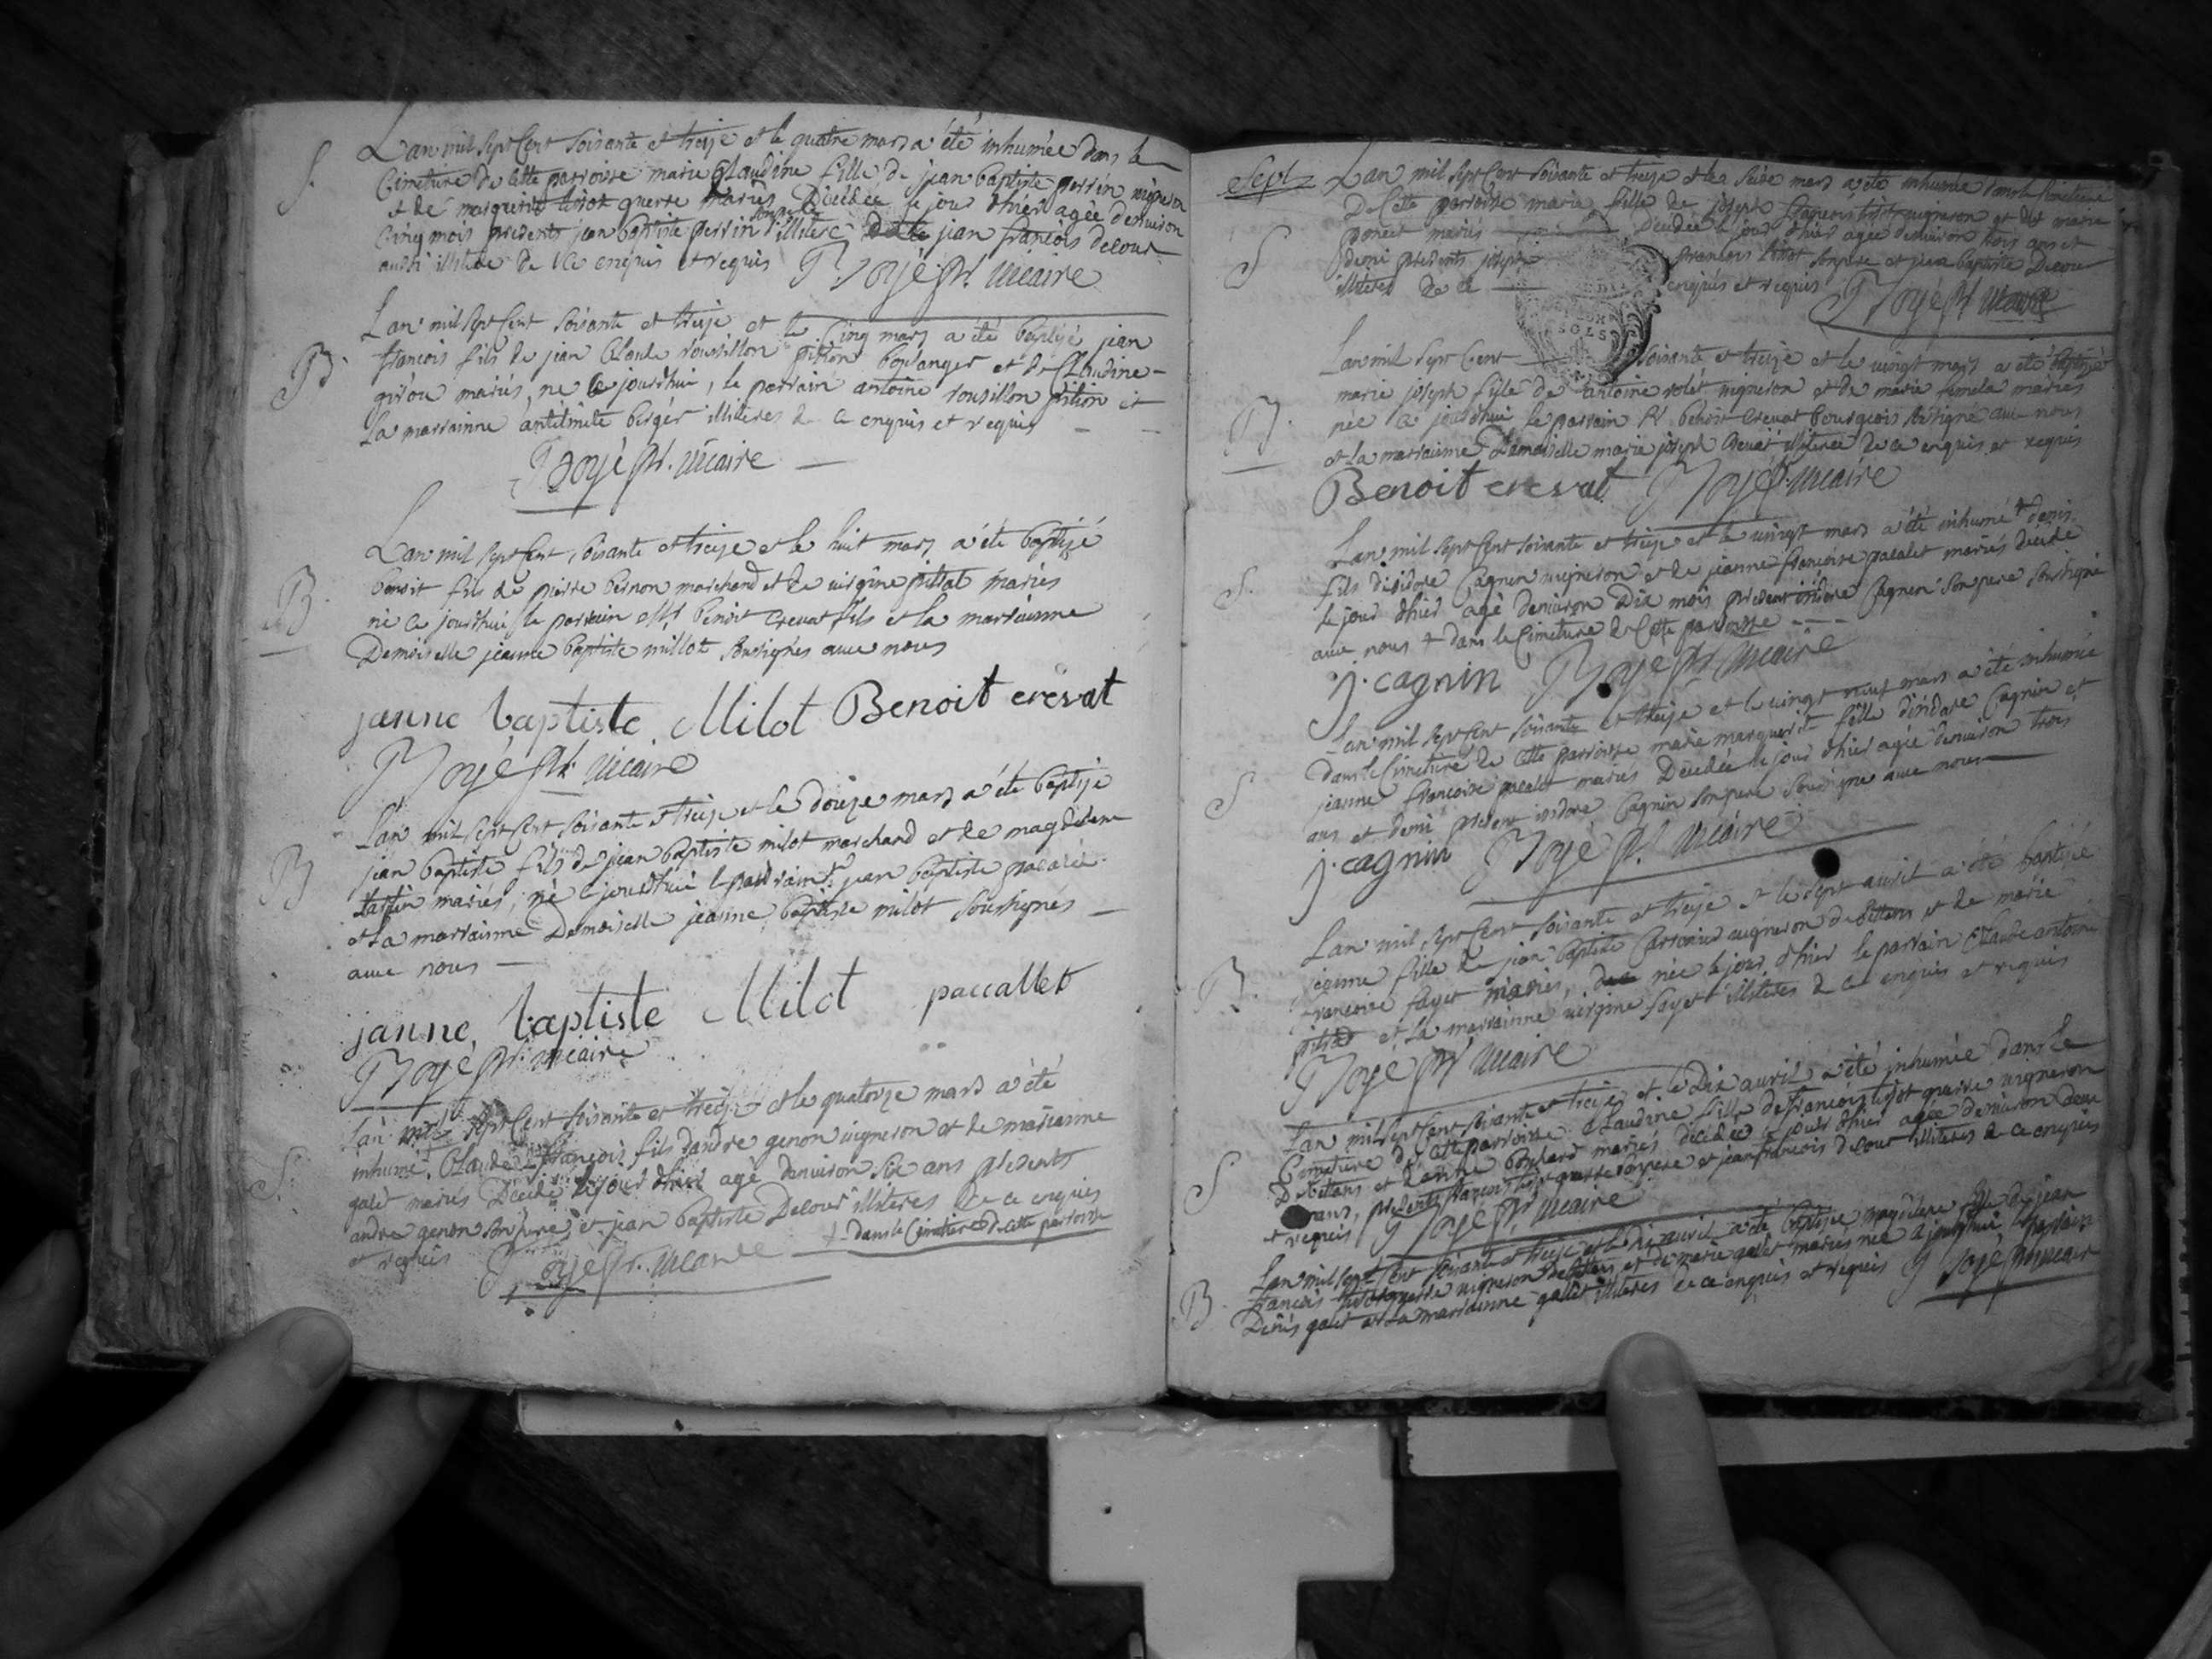 S. Lan mil sept Cent soisante et treize et le quatre mars a été inhumée dans le
Cimetiere de Cette parroisse marie Claudine fille de jean baptiste perrin uigneron
et de marguerite tissot guerre mariés Décédée le jour d'hier agée denuiron
Cinq mois presents jean baptiste perrin son pere illitere jean francois decour
aussi illitere de ce enquis et requis Joyé ptr. uicaire
B. Lan mil sept Cent soisante et treize et le Cinq mars a été baptizé jean
francois fils de jean Claude rousillon pition boulanger et de Claudine
mariés, né ce jourdhui, le parrain antoine rousillon pition et
la marrainne berger illiteres de ce enquis et requis
Joyé ptr. uicaire
B. Lan mil sept Cent soisante et treize et le huit mars a été baptizé
benoit fils de pierre bernon marchand et de uirgine pittat mariés
né ce jourdhui le parrain benoit creuat fils et la marrainne
Demoiselle jeanne baptiste millot soussignés auec nous
janne baptiste Milot Benoit crevat
Joyé ptr. uicaire
B Lan mil sept Cent soisante et treize et le douze mars a été baptizé
jean baptiste fils de jean baptiste milot marchand et de magdelene
mariés, né ce jourdhui le parrain jean baptiste pacalet
et la marrainne Demoiselle jeanne baptiste milot soussignés
auec nous
janne baptiste Milot paccallet
Joyé ptr. uicaire
S. Lan mil sept Cent soisante et treize et le quatorze mars a été
inhumé + Claude francois fils dandre genon uigneron et de marianne
galet mariés Décédé le jour d'hier agé denuiron six ans presents
andre genon son pere et jean baptiste Decour illiteres de ce enquis
et requis Joyé ptr. uicaire + dans le Cimetiere de Cette parroisse
Sept
S Lan mil sept Cent soisante et treize et le seize mars a été inhumée dans le Cimetiere
De Cette parroisse marie fille de joseph francois tissot uigneron et de marie
poncet mariés Décédée le jour d'hier agée denuiron trois ans et
demi presents joseph francois tissot son pere et jean baptiste Decour
illiteres de ce enquis et requis Joyé ptr uicaire
SOLS
B. Lan mil sept Cent soisante et treize et le uingt mars a été baptizée
marie joseph fille de antoine rolet uigneron et de marie mariés
née ce jourdhui le parrain Sr benoit creuat bourgeois soussigné auec nous
et la marrainne Demoiselle marie joseph creuat illiteree de ce enquis et requis
Benoit crevat Joyé ptr. uicaire
S. Lan mil sept Cent soisante et treize et le uingt mars a été inhumé + denis
fils disidore Cagnin uigneron et de jeanne francoise pacalet mariés decédé
le jour d'hier agé denuiron Dix mois present isidore Cagnin son pere soussigné
auec nous + dans le Cimetiere de Cette parroisse
j. cagnin Joyé ptr uicaire
S Lan mil sept Cent soisante et treize et le uingt neuf mars a été inhumée
dans le Cimetiere de Cette parroisse marie marguerite fille disidore Cagnin et
jeanne francoise pacalet mariés Décédée le jour d'hier agée denuiron trois
ans et demi present isidore Cagnin son pere soussigné auec nous
j. cagnin Joyé ptr. uicaire
B. Lan mil sept Cent soisante et treize et le sept auril a été baptizée
jeanne fille de jean baptiste uigneron de bettans et de marie
francoise fayet mariés, née le jour d'hier le parrain Claude antoine
et la marrainne uirgine fayet illiteres de ce enquis et requis
Joyé ptr uicaire
S Lan mil sept Cent soisante et treize et le Dix auril a été inhumée dans le
Cimetiere de Cette parroisse Claudine fille de francois tissot guerre uigneron
De bettans et mariés décédée le jour d'hier agée denuiron deux
ans, presents francois tissot guerre son pere et jean francois decour illiteres de ce enquis
et requis Joyé ptr uicaire
B. Lan mil sept Cent soisante et treize et le Dix auril a été baptizée magdelene fille de jean
francois tissot guerre uigneron de bettans et de marie galet mariés née ce jourdhui le parrain
Denis galet et la marrainne galet illiteres de ce enquis et requis Joyé ptr uicaire